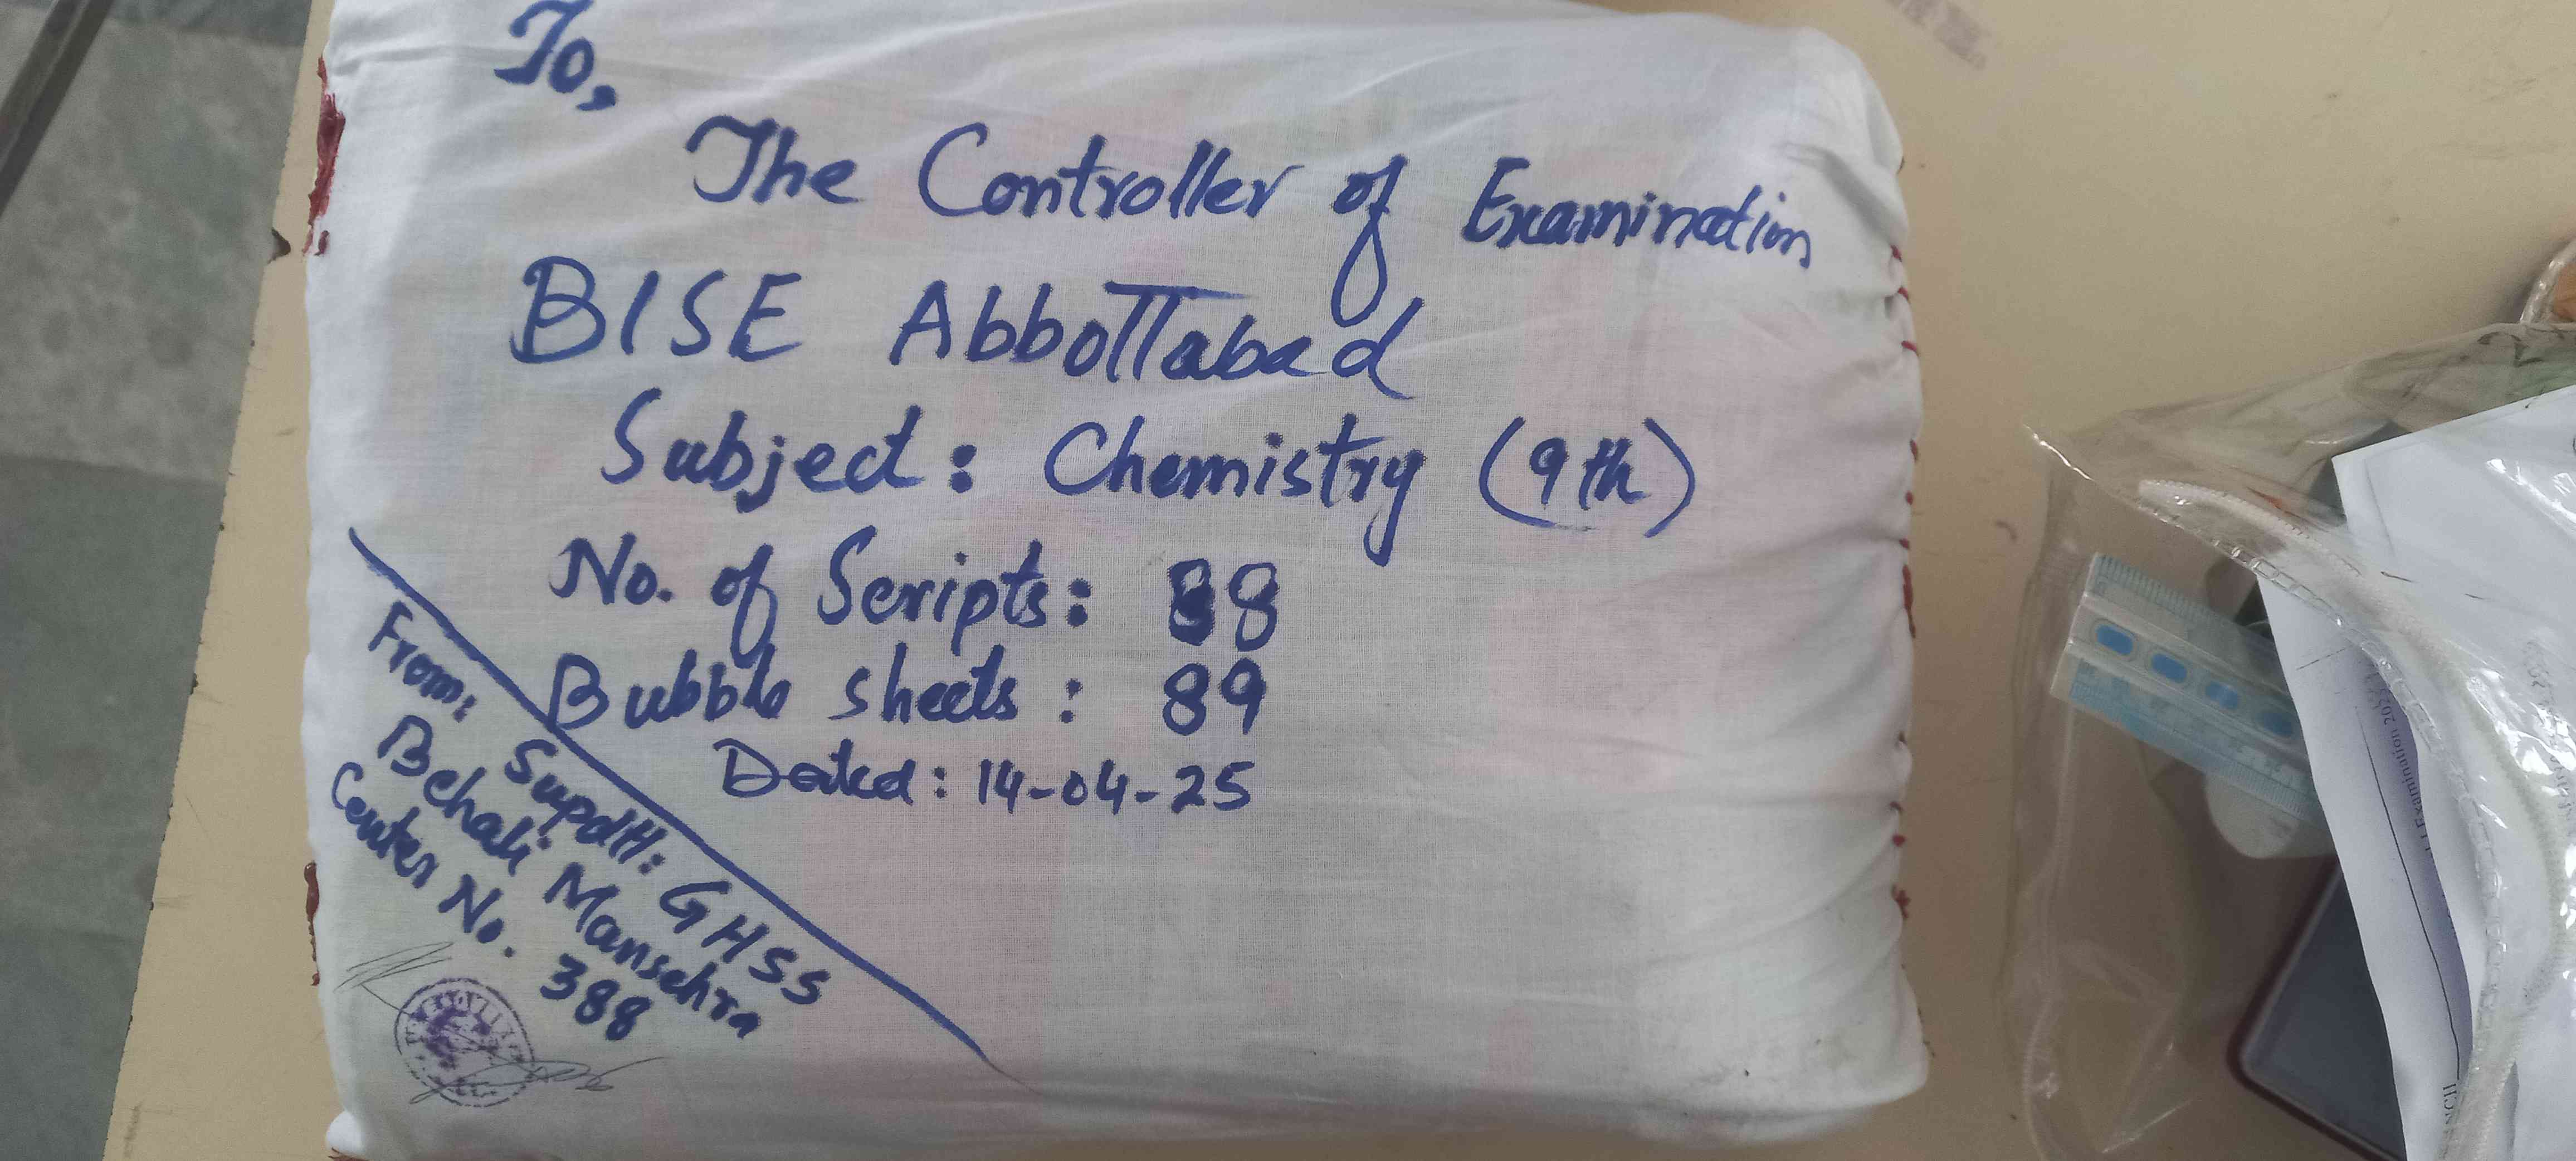 To,
The Controller of Examination
BISE Abbottabad
Subject: Chemistry (9th)
No. of Scripts: 88
Bubble sheets: 89
Dated: 14-04-25
From: Supdtt: GHSS
Behali Mansehra
Center No. 388
Examination 202